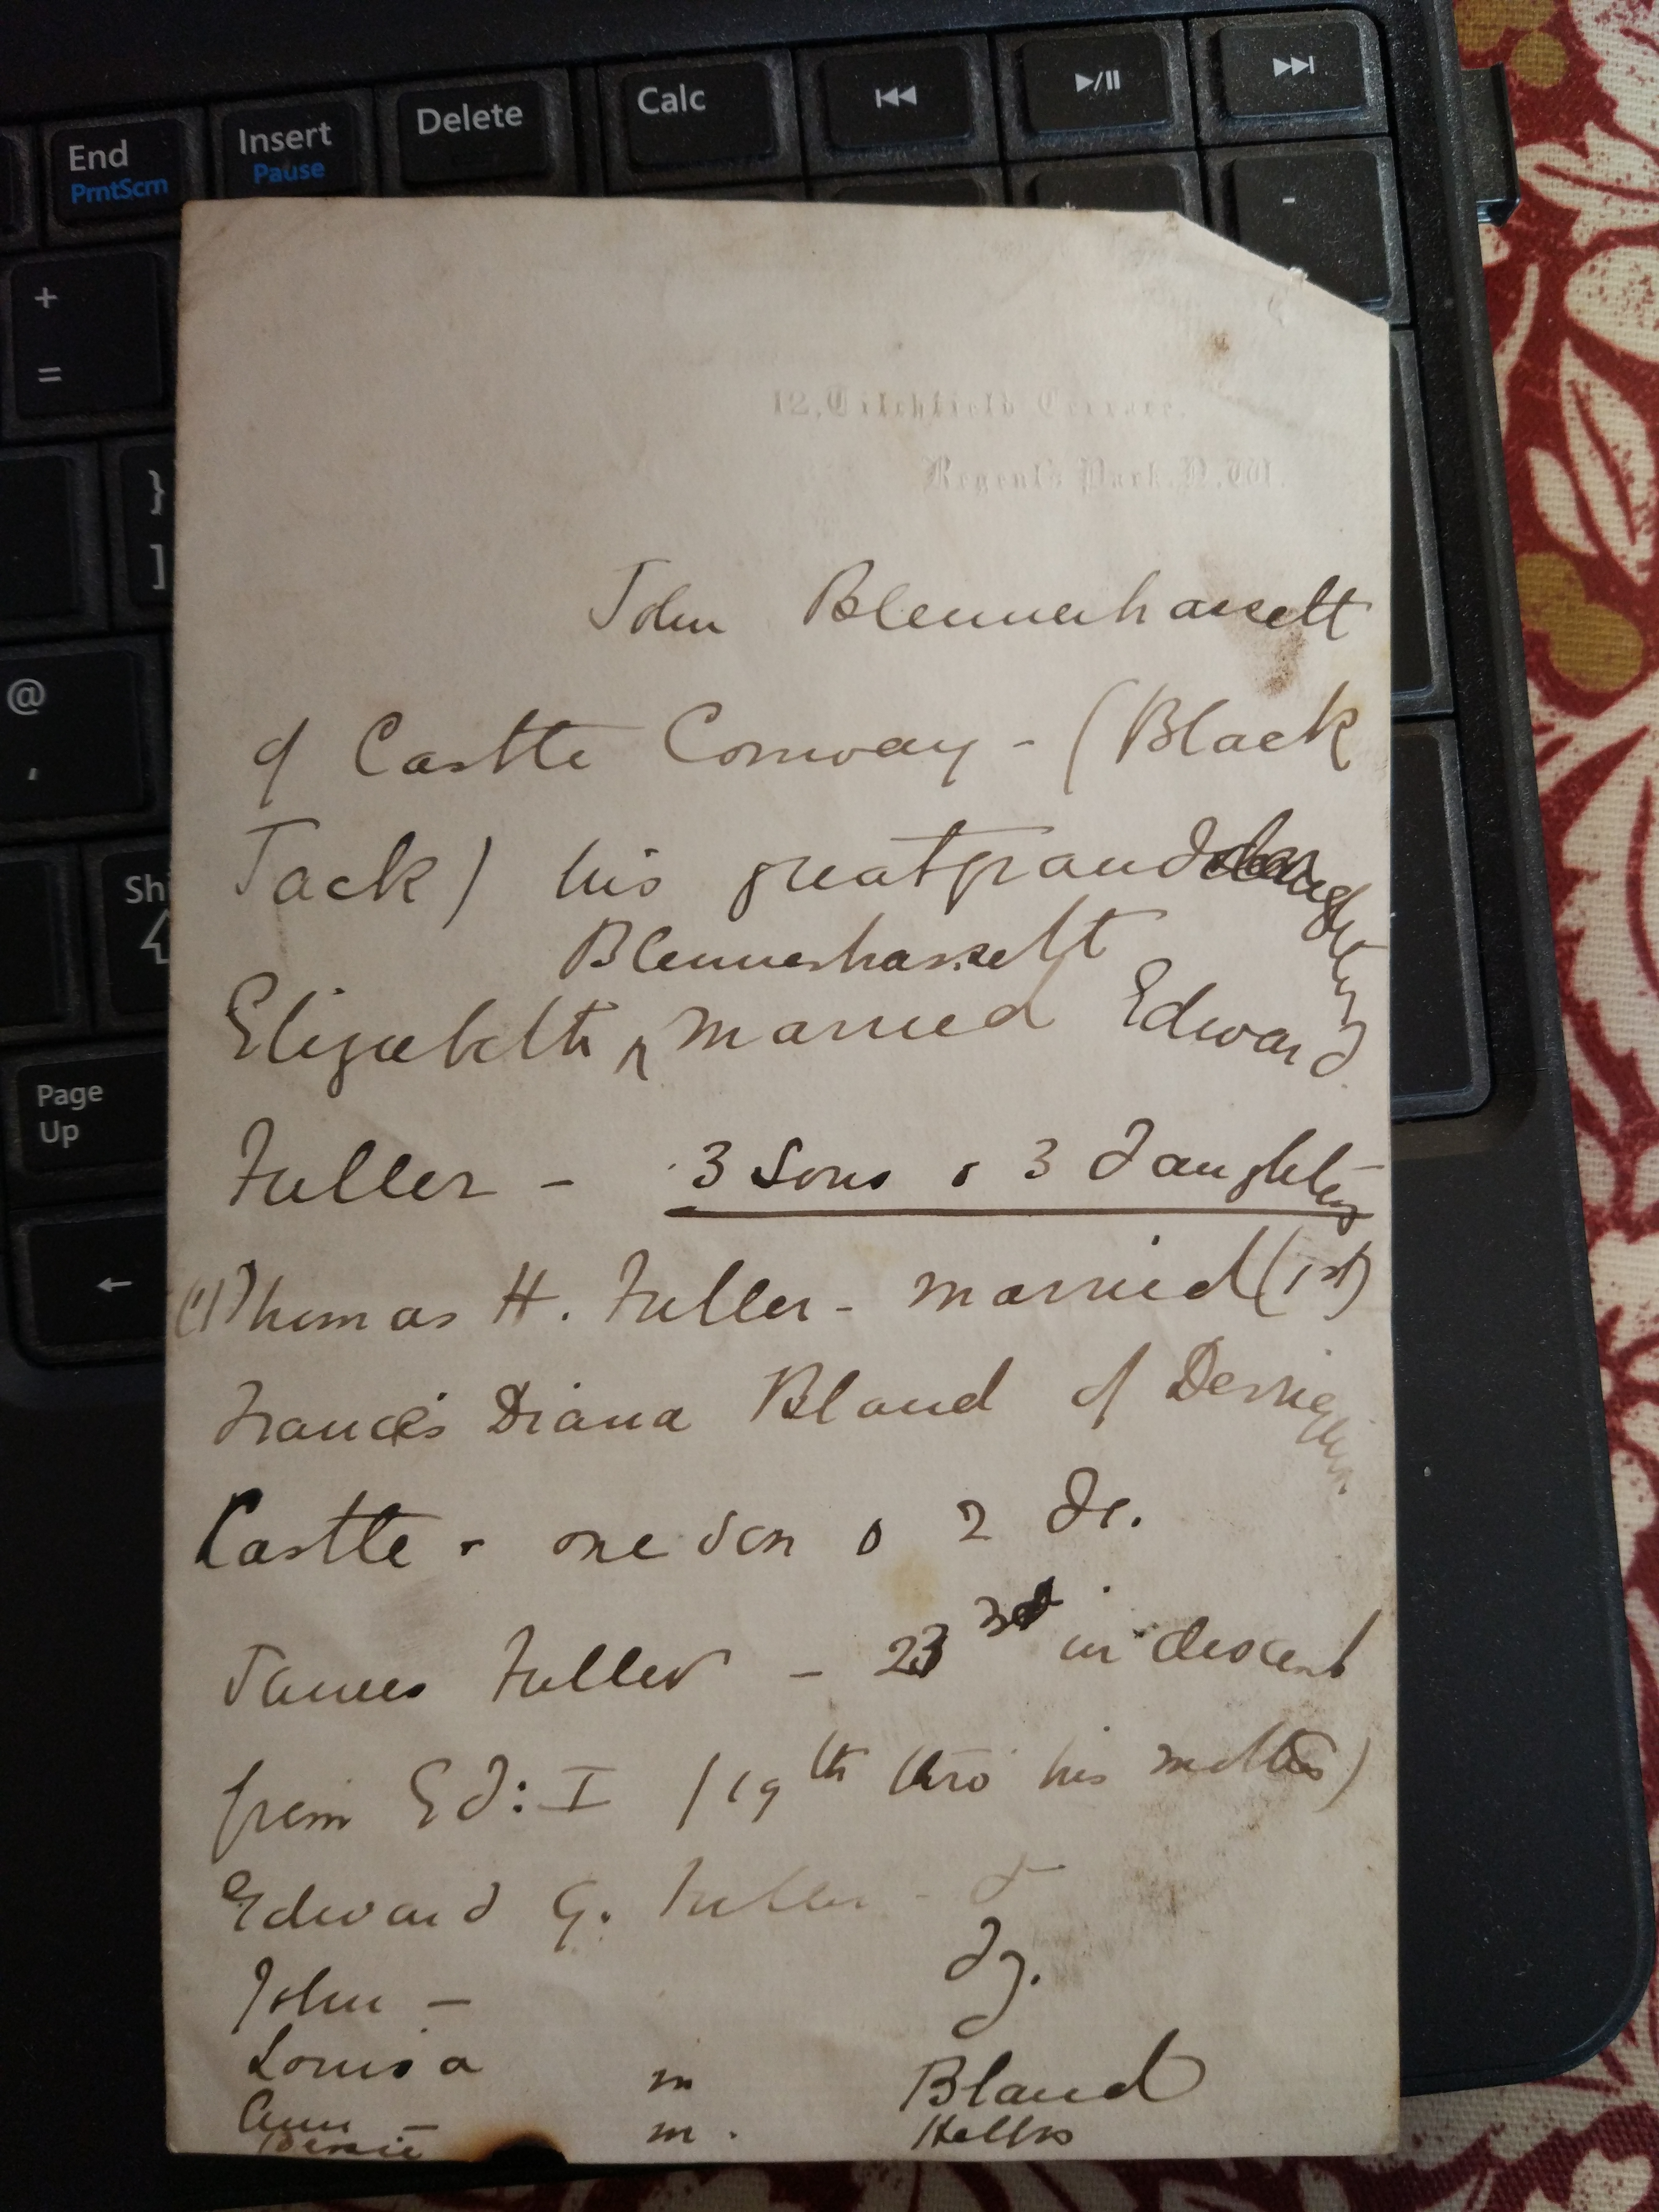 End
PrntScrn
Insert
Pause
Delete
Calc
+
=
-
}
]
@
,
Shi
Page
Up
12, Titchfield Terrace.
Regent's Park. N.W.
John Blennerhassett
of Castle Conway - (Black
Jack) his great grand daughter
Blennerhassett
Elizabeth ^ married Edward
Fuller - 3 Sons & 3 daughters
(1) Thomas H. Fuller - married (1st)
Frances Diana Bland of Derriquin
Castle - one son & 2 Ds.
James Fuller - 23rd in descent
from Ed: I (19th thro' his mother)
Edward G. Fuller -
John -
Louisa m Bland
Ann - m.
Bessie